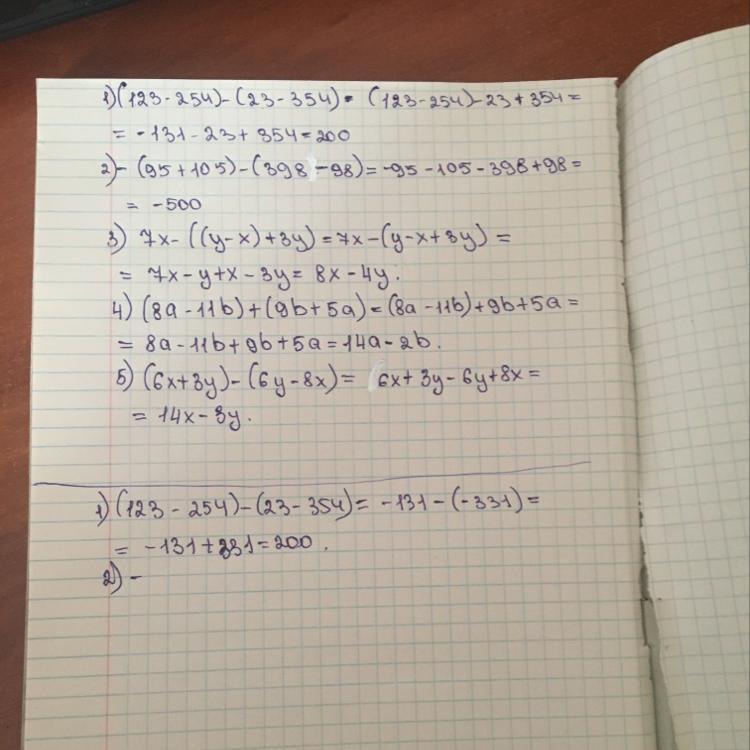 1) (123-254)-(23-354)= (123-254)-23+354=
= -131-23+354=200
2) -(95+105)-(398-98)=-95-105-398+98=
= -500
3) 7x-((y-x)+3y)=7x-(y-x+3y)=
= 7x-y+x-3y=8x-4y.
4) (8a-11b)+(9b+5a)=(8a-11b)+9b+5a=
= 8a-11b+9b+5a=14a-2b.
5) (6x+3y)-(6y-8x)= 6x+3y-6y+8x=
= 14x-3y.
1) (123-254)-(23-354)= -131-(-331)=
= -131+331=200.
2) -